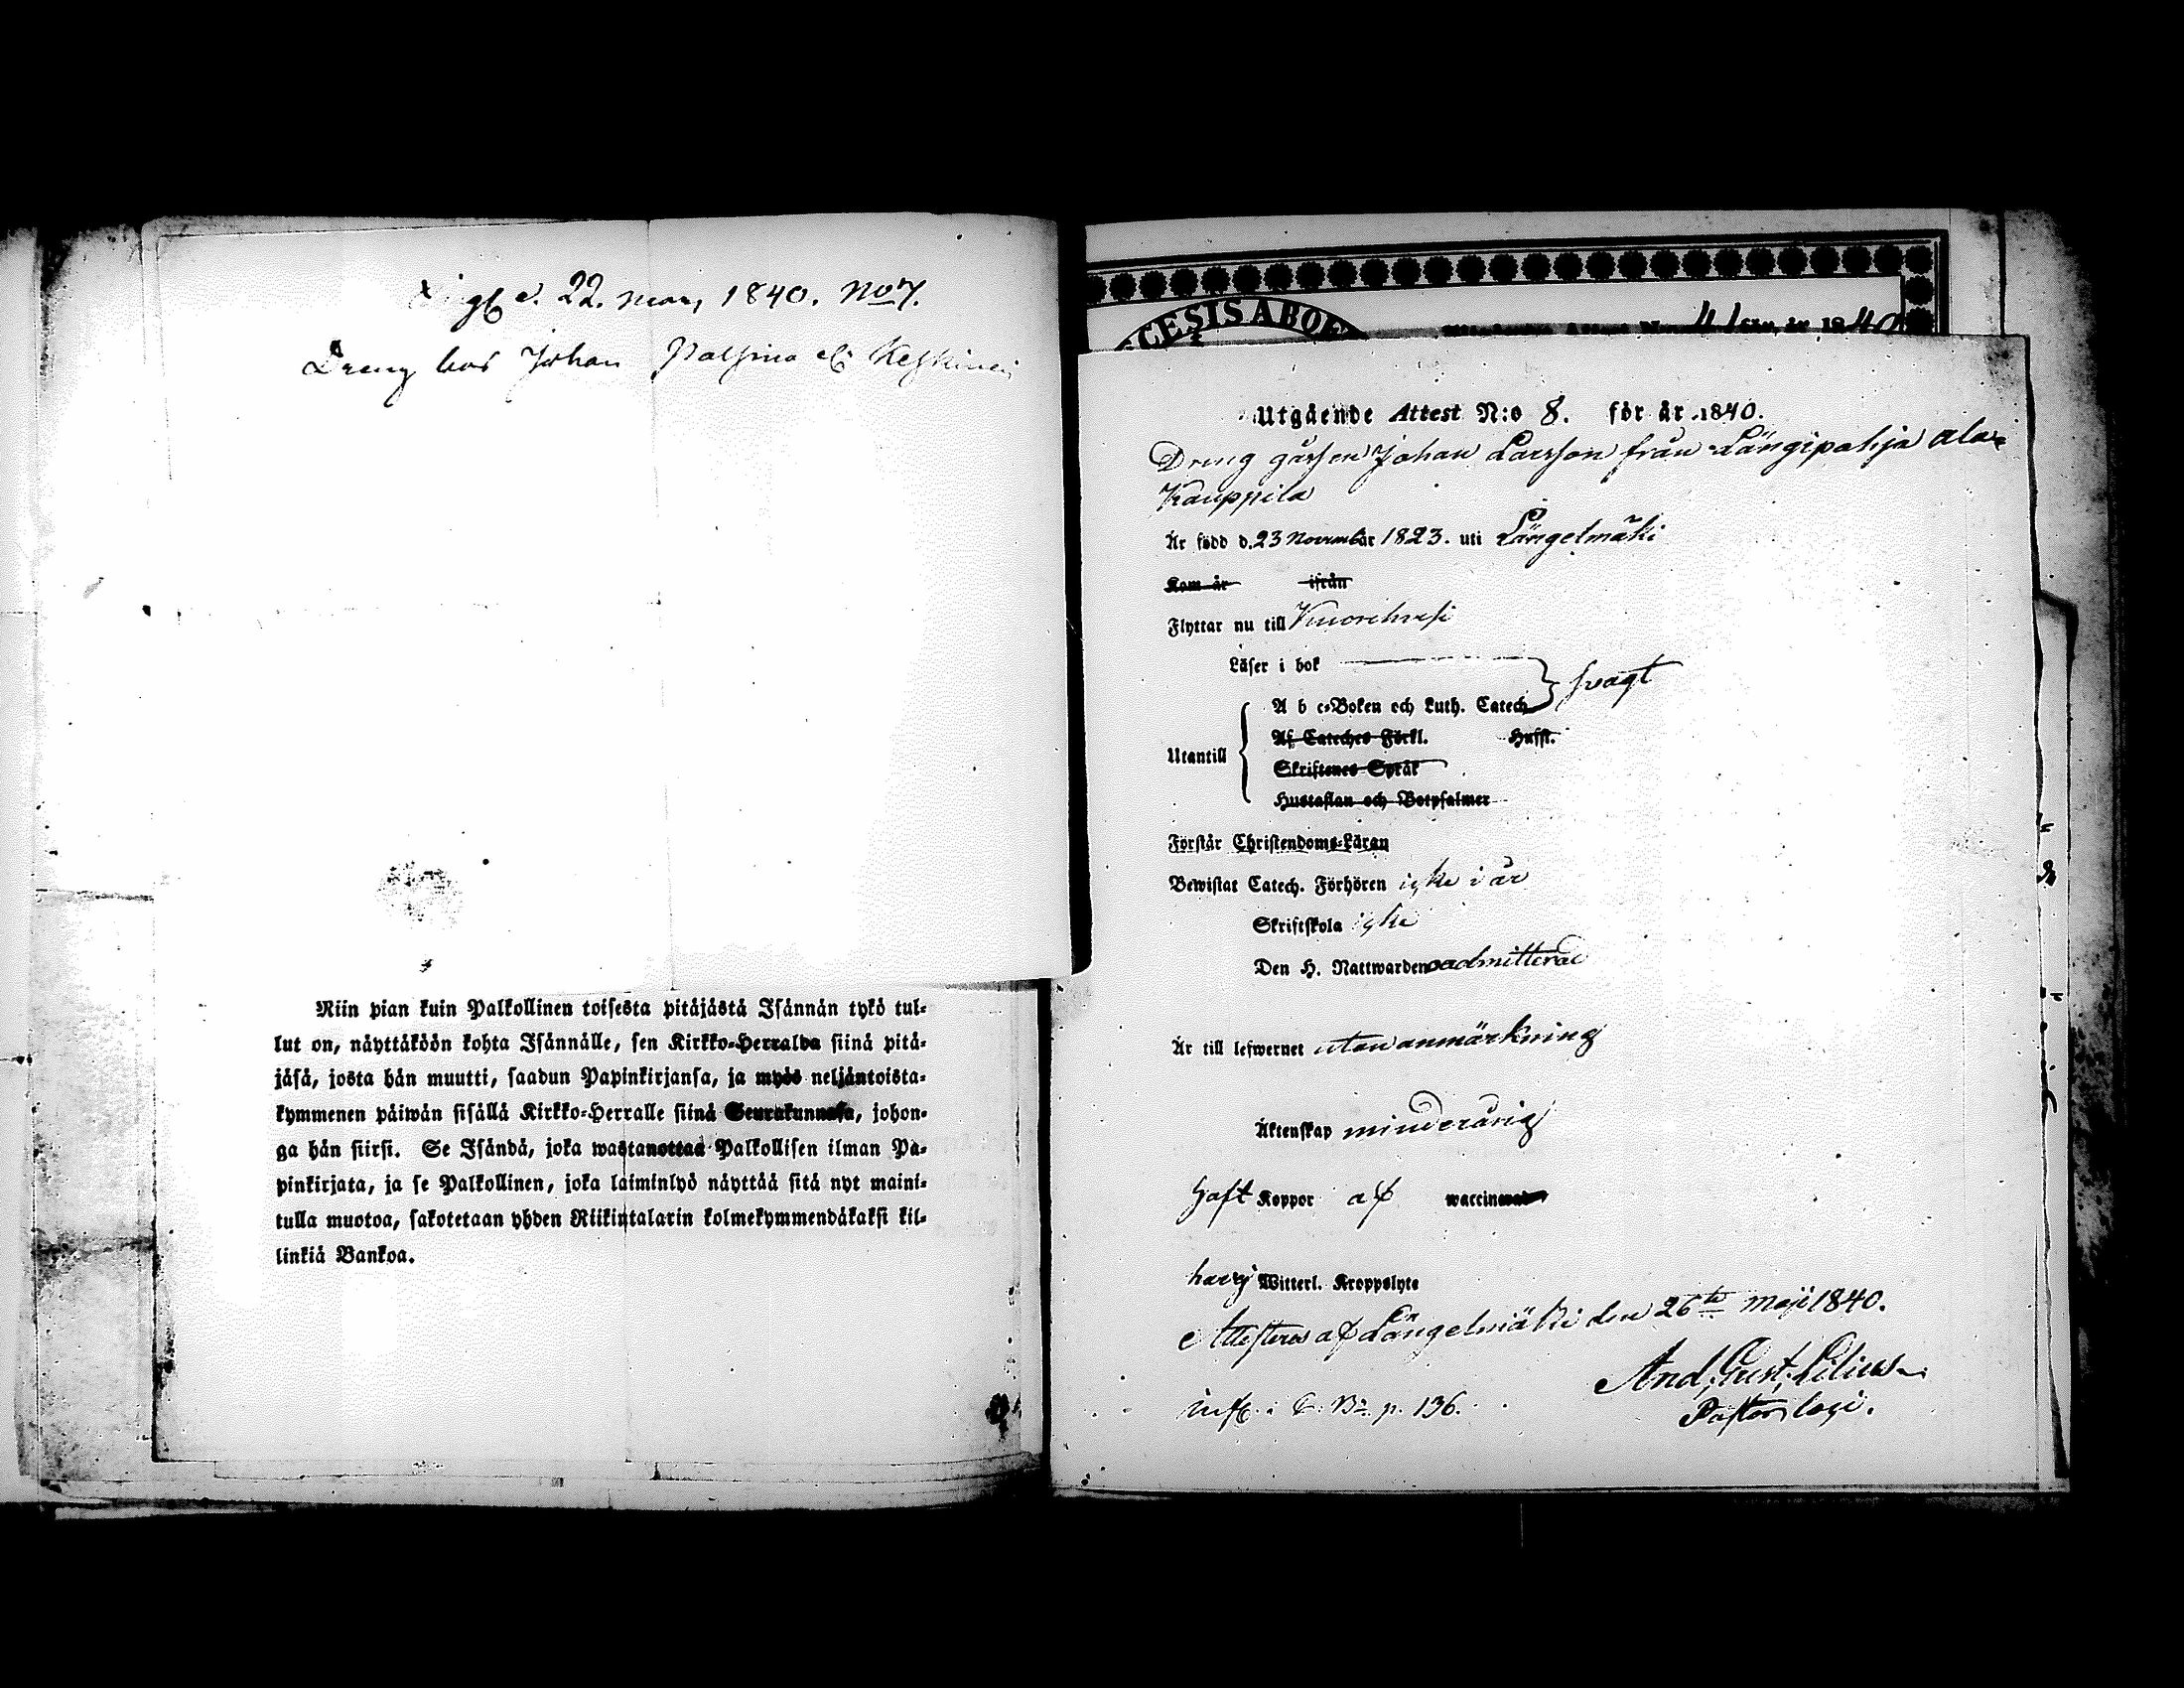 d. 22. nov, 1840. No 7.
Dreng hos Johan
Niin pian kuin Palkollinen toisesta pitäjästä Isännän tykö tul-
lut on, näyttäköön kohta Isännälle, sen Kirkko-Herralda siinä pitä-
jäsä, josta hän muutti, saadun Papinkirjansa, ja myös neljäntoista-
kymmenen päiwän sisällä Kirkko-Herralle siinä Seurakunnasa, johon-
ga hän siirsi. Se Isändä, joka wastanottaa Palkollisen ilman Pa-
pinkirjata, ja se Palkollinen, joka laiminlyö näyttää sitä nyt maini-
tulla muotoa, sakotetaan yhden Riikintalarin kolmekymmendäkaksi kil-
linkiä Bankoa.
CESIS ABOE
41 1840
Utgående Attest N:o 8. för år 1840.
Dreng gåssen Johan Larsson från Längipohja Ala-
Kauppila
Är född d. 23 November 1823. uti Längelmäki
Kom år ifrån
Flyttar nu till Kuorehvesi
Läser i bok
svagt
A b c-Boken och Luth. Catech.
Af Cateches Förkl. Husft.
Utantill
Skriftenes Språk
Hustaflan och Botpsalmer
Förstår Christendoms-Läran
Bewistat Catech. Förhören icke i år
Skriftskola icke
Den H. Nattwarden oadmitterad
Är till lefwernet utan anmärkning
Äktenskap minderårig
Haft Koppor af waccinerad
har ej Witterl. Kroppslyte
Attesteras af Längelmäki den 26te Maji 1840.
And. Gust. Lilius
Pastor loci.
inf. i C. B. p. 136.